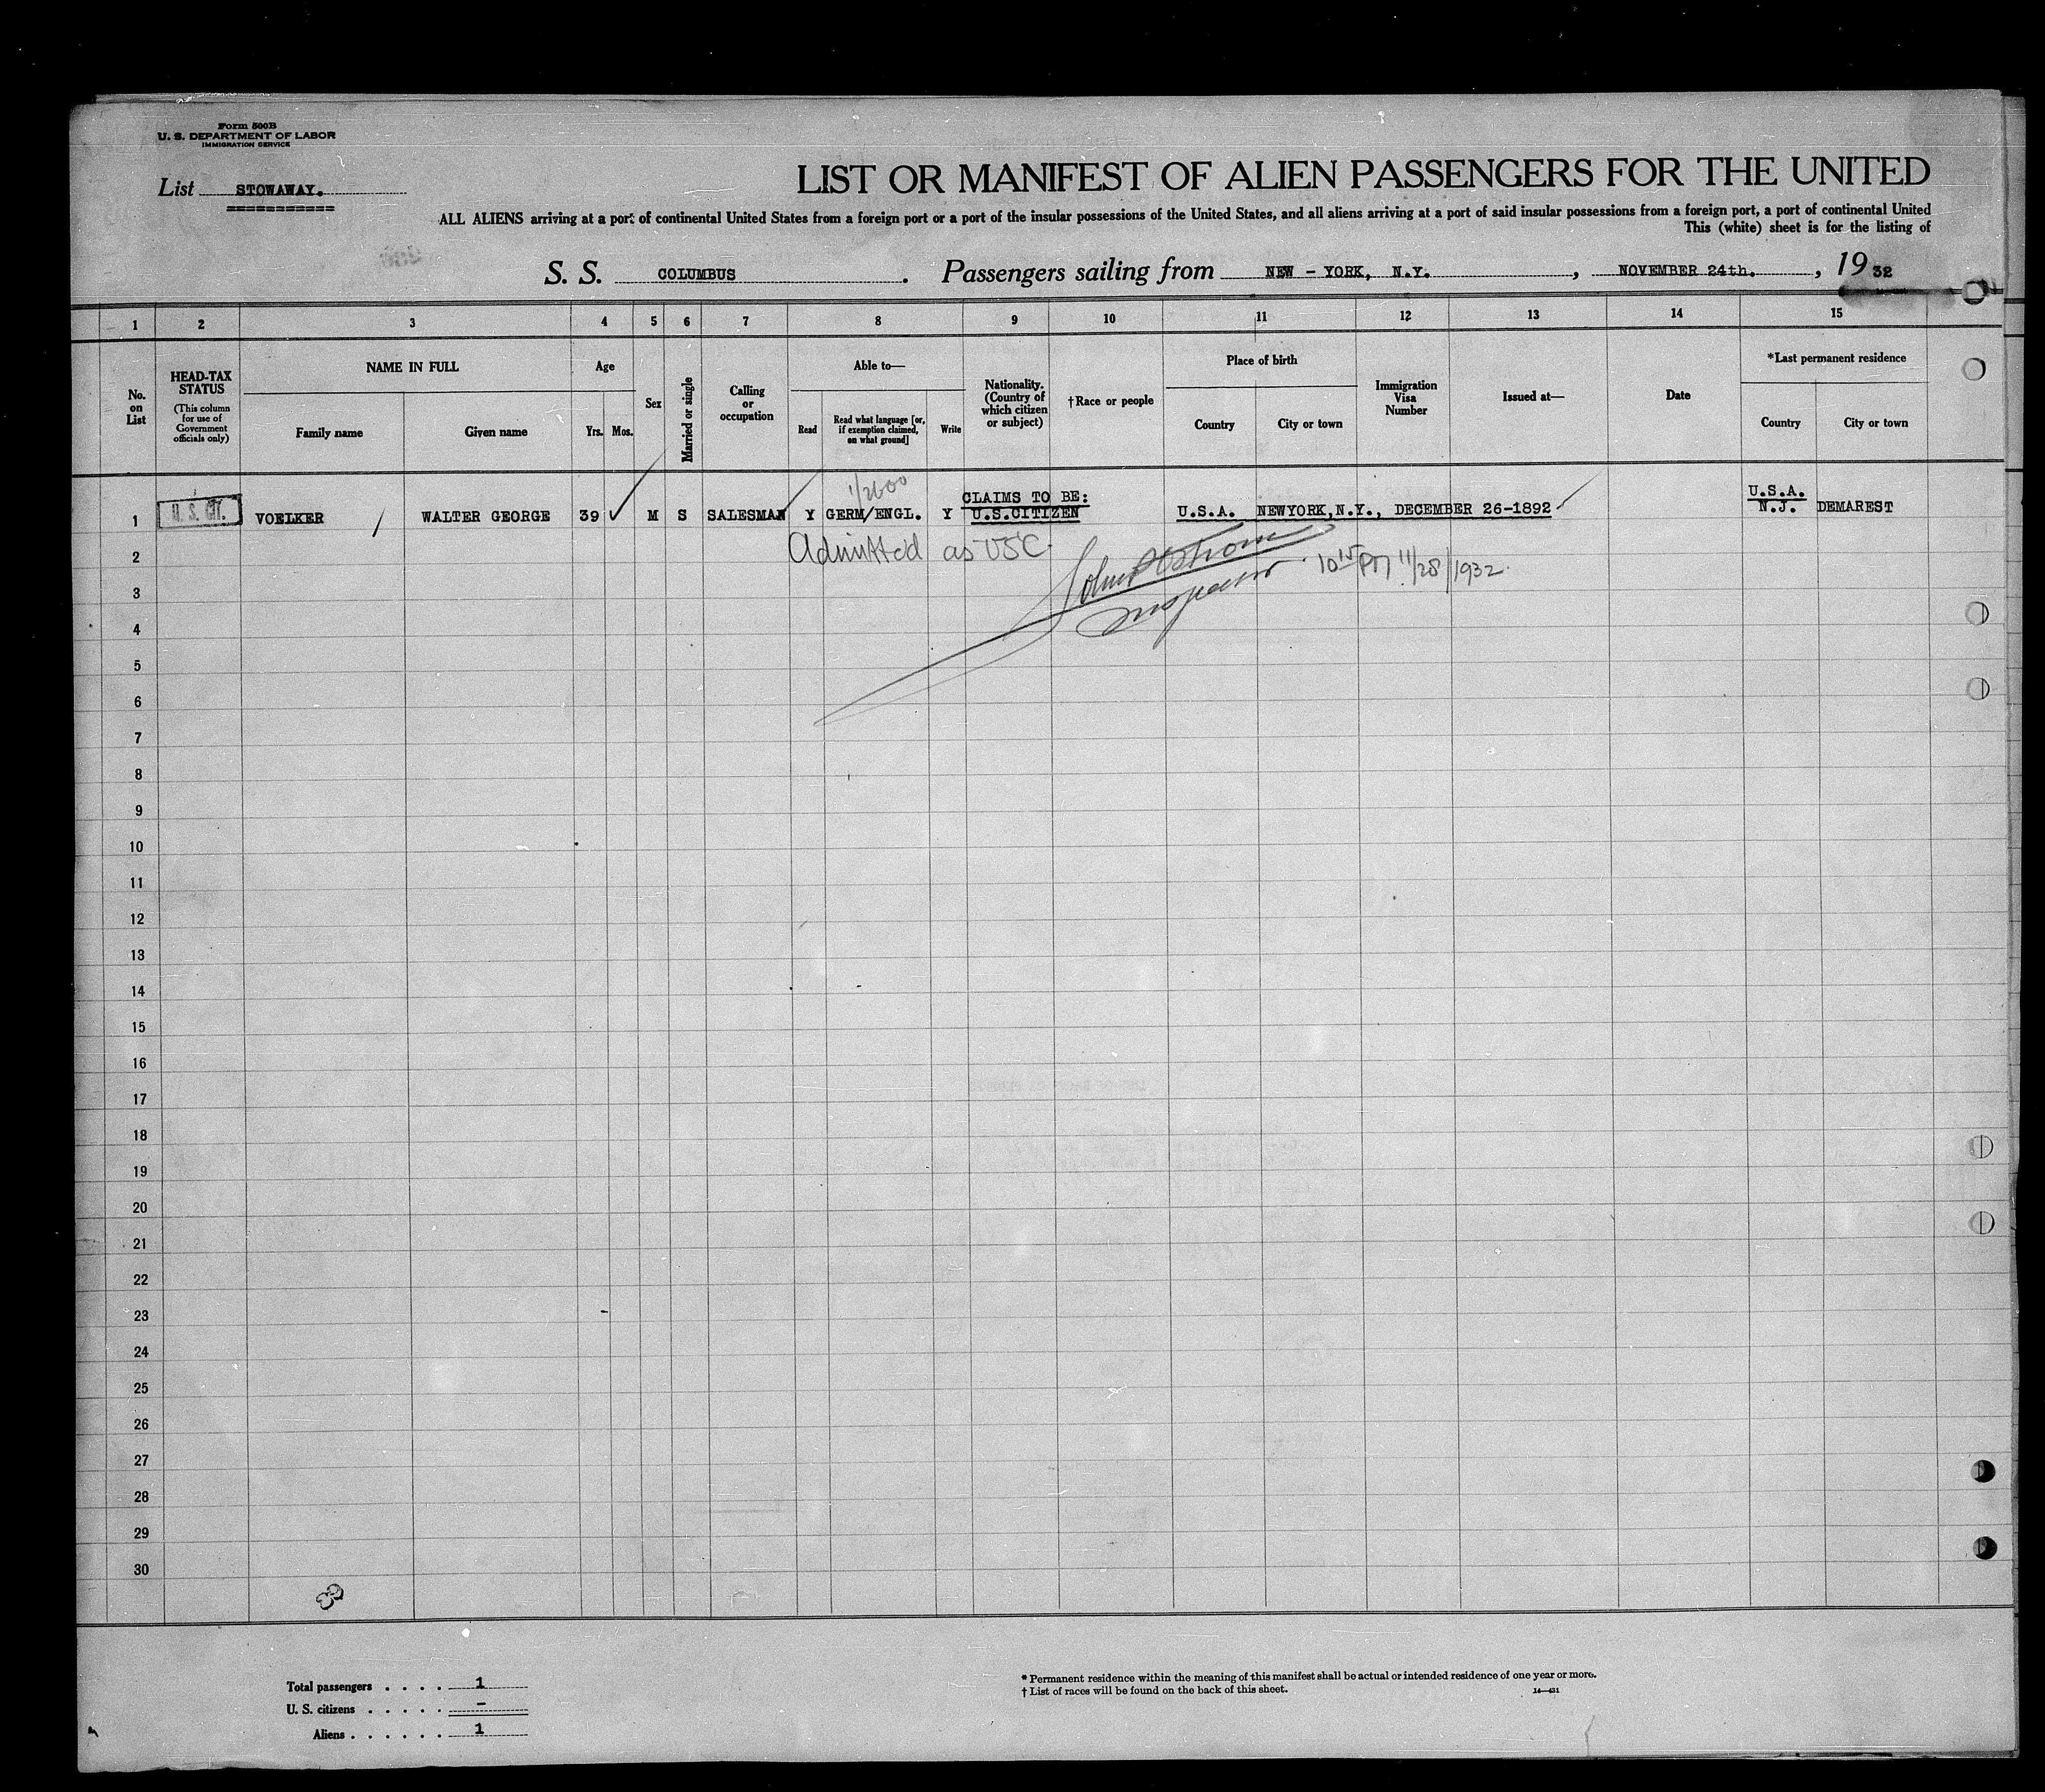 Form 500B
U. S. DEPARTMENT OF LABOR
IMMIGRATION SERVICE
List STOWAWAY.
LIST OR MANIFEST OF ALIEN PASSENGERS FOR THE UNITED
ALL ALIENS arriving at a port of continental United States from a foreign port or a port of the insular possessions of the United States, and all aliens arriving at a port of said insular possessions from a foreign port, a port of continental United
This (white) sheet is for the listing of
S. S. COLUMBUS. Passengers sailing from NEW - YORK, N.Y., NOVEMBER 24th., 19 32
1 2 3 4 5 6 7 8 9 10 11 12 13 14 15
No. on List
HEAD-TAX STATUS
(This column for use of Government officials only)
NAME IN FULL
Family name
Given name
Age
Yrs. Mos.
Sex
Married or single
Calling or occupation
Able to—
Read
Read what language [or, if exemption claimed, on what ground]
Write
Nationality. (Country of which citizen or subject)
†Race or people
Place of birth
Country
City or town
Immigration Visa Number
Issued at—
Date
*Last permanent residence
Country
City or town
1 U. S. CIT. VOELKER WALTER GEORGE 39 M S SALESMAN Y GERM/ENGL. Y CLAIMS TO BE: U.S.CITIZEN U.S.A. NEWYORK,N.Y., DECEMBER 26-1892 U.S.A. N.J. DEMAREST
Admitted as USC
Inspector 10 15 PM 11/28/1932
2
3
4
5
6
7
8
9
10
11
12
13
14
15
16
17
18
19
20
21
22
23
24
25
26
27
28
29
30
Total passengers . . . . 1
U. S. citizens . . . . . –
Aliens . . . . . . 1
* Permanent residence within the meaning of this manifest shall be actual or intended residence of one year or more.
† List of races will be found on the back of this sheet.
14—431